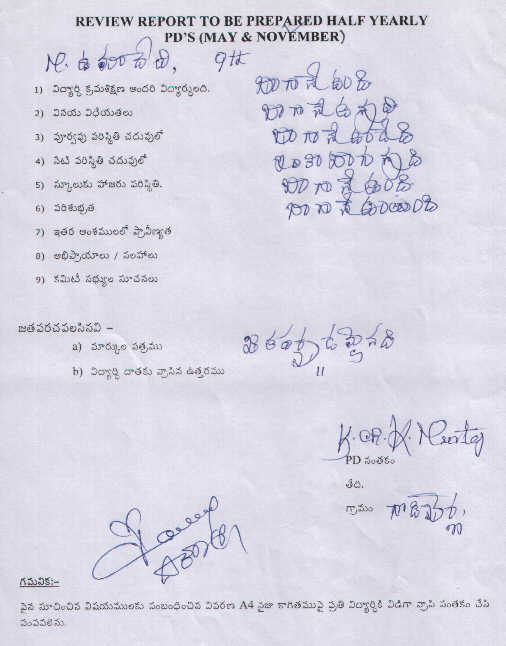 REVIEW REPORT TO BE PREPARED HALF YEARLY
PD'S (MAY & NOVEMBER)
9th
1) విద్యార్థి క్రమశిక్షణ అందరి విద్యార్థులది. బాగానే ఉంది
2) వినయ విధేయతలు బాగానే ఉన్నాది
3) పూర్వపు పరిస్థితి చదువులో బాగానే ఉండేది
4) నేటి పరిస్థితి చదువులో బాగున్నాది
5) స్కూలుకు హాజరు పరిస్థితి. బాగానే ఉంది
6) పరిశుభ్రత బాగానే ఉంటుంది
7) ఇతర అంశములలో ప్రావీణ్యత
8) అభిప్రాయాలు / సలహాలు
9) కమిటీ సభ్యుల సూచనలు
జతపరచవలసినవి –
a) మార్కుల పత్రము
b) విద్యార్థి దాతకు వ్రాసిన ఉత్తరము "
PD సంతకం
తేది.
గ్రామం
గమనిక:–
పైన సూచించిన విషయములకు సంబంధించిన వివరణ A4 సైజు కాగితముపై ప్రతి విద్యార్థికి విడిగా వ్రాసి సంతకం చేసి
పంపవలెను.